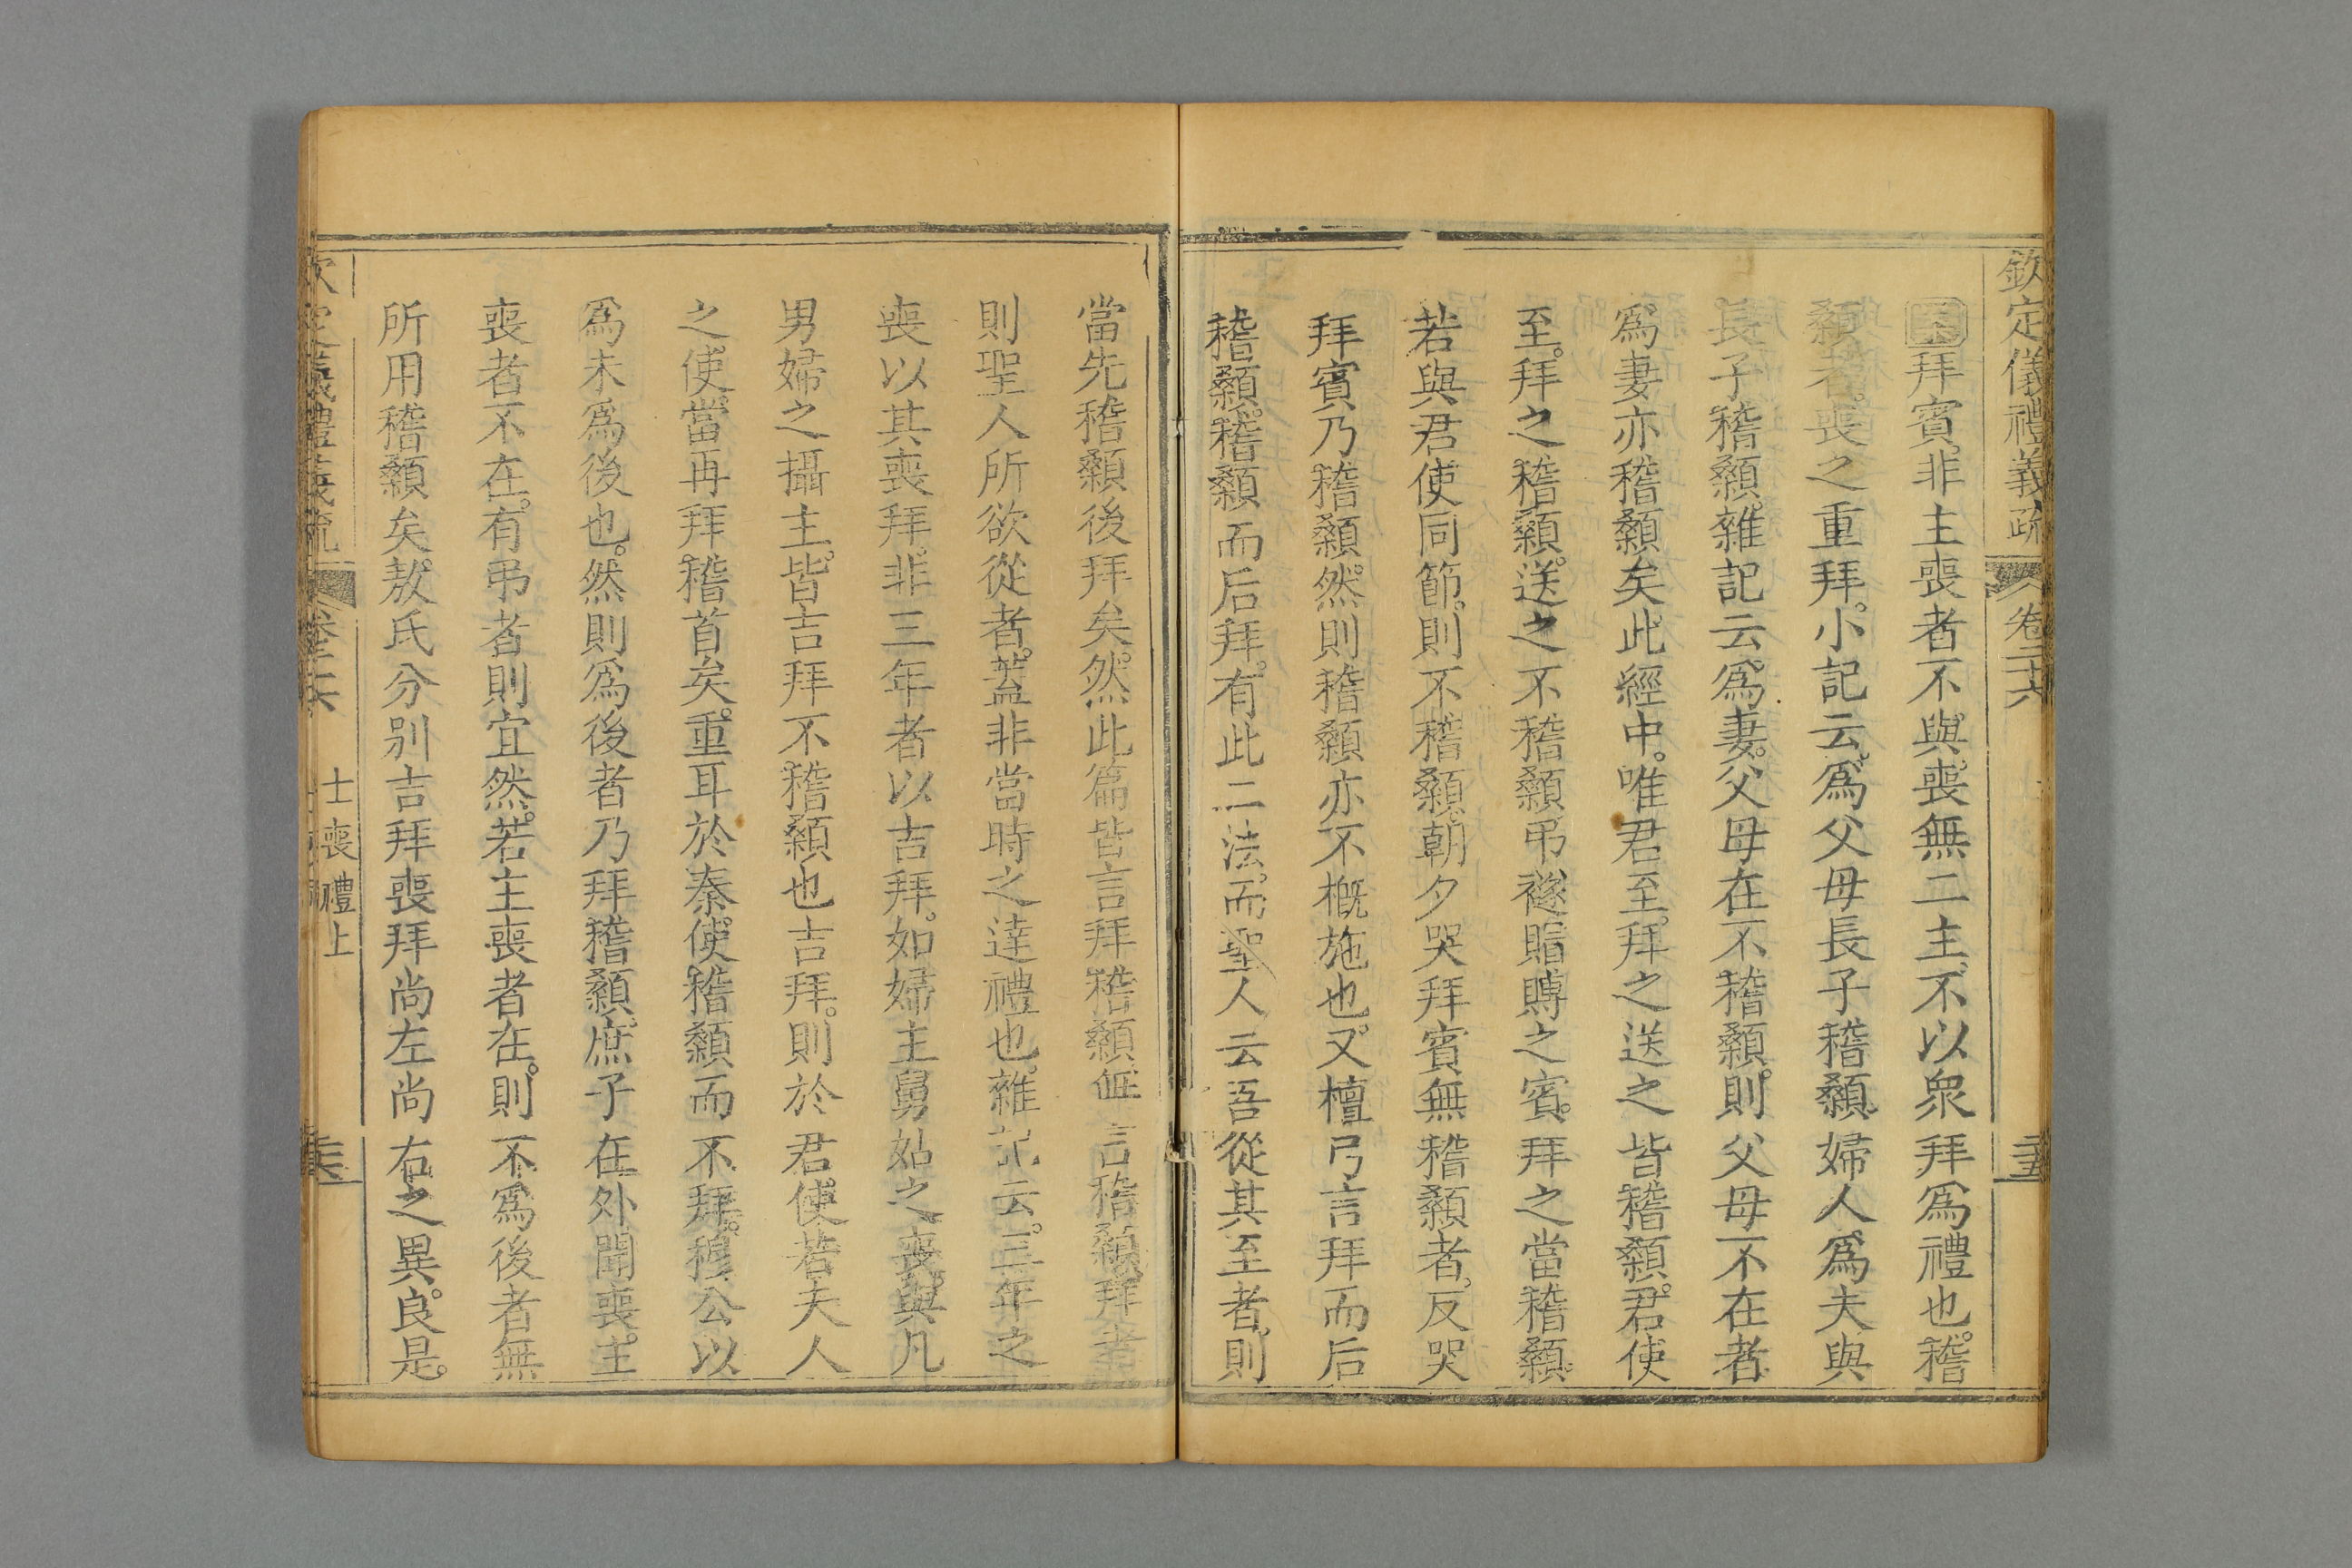 欽定儀禮義疏 卷二十六 三十五
案拜賓非主喪者不與喪無二主不以衆拜爲禮也稽
顙者喪之重拜小記云爲父母長子稽顙婦人爲夫與
長子稽顙雜記云爲妻父母在不稽顙則父母不在者
爲妻亦稽顙矣此經中唯君至拜之送之皆稽顙君使
至拜之稽顙送之不稽顙弔襚賵賻之賓拜之當稽顙
若與君使同節則不稽顙朝夕哭拜賓無稽顙者反哭
拜賓乃稽顙然則稽顙亦不槪施也又檀弓言拜而后
稽顙稽顙而后拜有此二法而聖人云吾從其至者則
當先稽顙後拜矣然此篇皆言拜稽顙無言稽顙拜者
則聖人所欲從者蓋非當時之達禮也雜記云三年之
喪以其喪拜非三年者以吉拜如婦主舅姑之喪與凡
男婦之攝主皆吉拜不稽顙也吉拜則於君使若夫人
之使當再拜稽首矣重耳於秦使稽顙而不拜穆公以
爲未爲後也然則爲後者乃拜稽顙庶子在外聞喪主
喪者不在有弔者則宜然若主喪者在則不爲後者無
所用稽顙矣敖氏分别吉拜喪拜尚左尚右之異良是
欽定儀禮義疏 卷二十六 士喪禮上